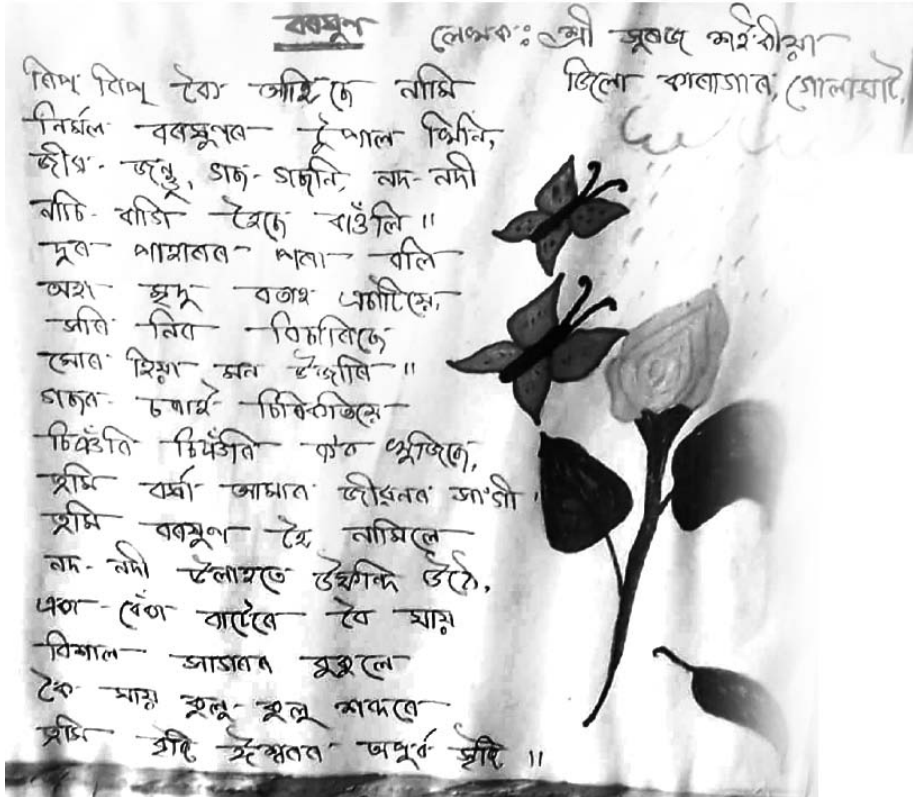 বৰষুণ
লেখক: শ্ৰী সুৰজ শইকীয়া
জিলা কাৰাগাৰ, গোলাঘাট,
টিপ্ টিপ্ কৈ আহিছে নামি
নিৰ্মল বৰষুণৰ টুপাল খিনি,
জীৱ-জন্তু, গছ-গছনি, নদ-নদী
নাচি-বাগি হৈছে বাউলি॥
দূৰ পাহাৰৰ পৰা বলি
অহা মৃদু বতাহ এচাটিয়ে,
সাৰি নিব বিচাৰিছে
মোৰ হিয়া মন উজাৰি॥
গছৰ চৰাই চিৰিকতিয়ে
চিঞঁৰি চিঞঁৰি কব খুজিছে,
তুমি বৰ্ষা আমাৰ জীৱনৰ সাৰ্থী।
তুমি বৰষুণ হৈ নামিলে
নদ-নদী উলাহতে উফন্দি উঠে,
একা-বেঁকা বাটেৰে বৈ যায়
বিশাল সাগৰৰ বুকুলে
কৈ যায় কুলু-কুলু শব্দৰে
তুমি হঁবি ঈশ্বৰৰ অপূৰ্ব সৃষ্টি॥